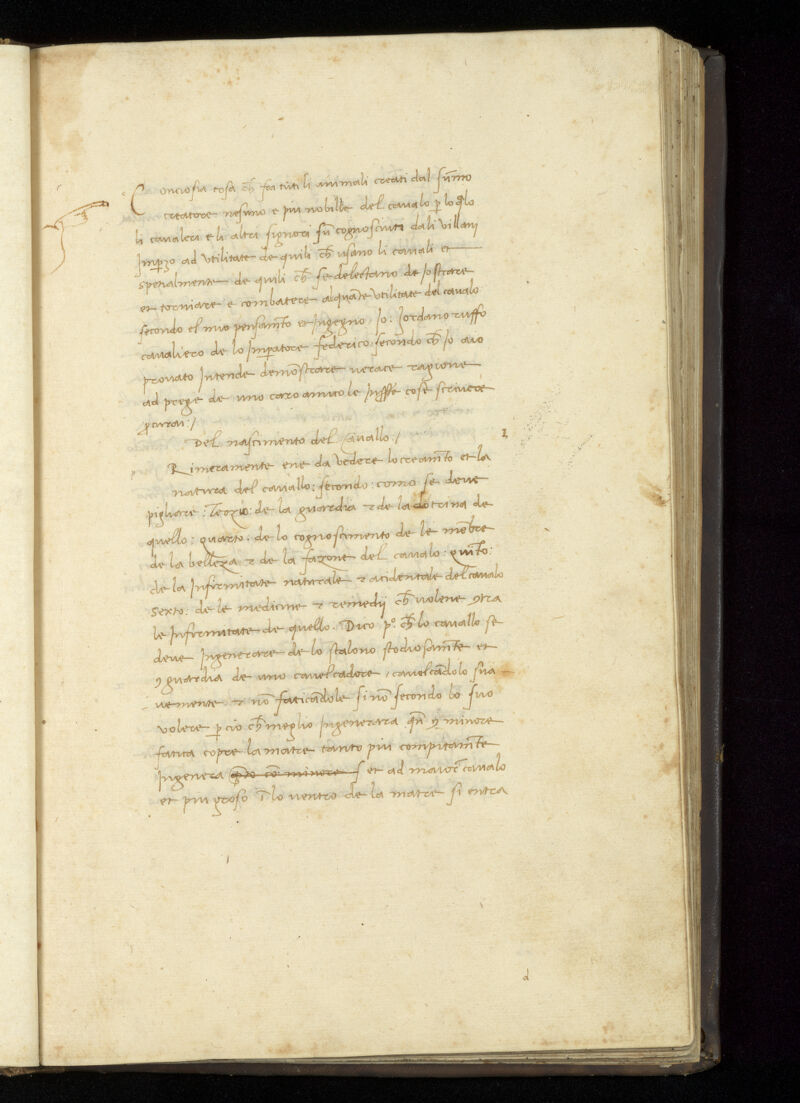 Conciosia cosa ch̄ fra tuti li animali creati dal su͞mo
creatore nesuno e piu nobille del cavalo p̱ lo q̄lo
li cavaleri e li altri signori su͞ cognosciuti dali villani
Imp̱zo ad utilitate de quili ch̄ usano li cavali et
spetialmente de quili ch̄ se delectano de Iostrare
et torniare e combatere alqua͞te utilitate del cavalo
secondo el mio pensame͞to et Ingegno. Io: Iordano ruffo
cavaliero de lo Imp̱atore federico secondo ch̄ Io aio
provato Intende demo͞strare verace ragione
ad prege de uno caro amico le Infr̄e cose scrivere
p̱curai:/
Del nascimento del cavallo:/
1
p Rimeramente ene da vedere lo creame͞to et la
natura del cavallo: secondo: como se deve
pigliare: Terzio: de la guardia et de la dotrina de
quello: quarto: de lo cognoscimento de le me͞bre
de la belleza et de la fazone del cavalo: quinto:
de la Infirmitate naturale et acidentale del cavalo
Sexto: de le medicine et remedij ch̄ volene ꝯtra
le Infirmitate de quello. Dico p͞o. ch̄ lo cavallo se
deve Ingenerare de lo stalono stodiosame͞te et
ꝯ guardia de uno cavelcadore, cavelca͞dolo sua
vemente et no͞ fatica͞dole si no͞ secondo lo suo
volere p̱cio ch̄ meglio Ingenerara qn̄ ꝯ minore
fatica copre la matre tanto piu compitame͞te
Ingenera qto co͞ minore f et ad maior cavalo
et piu groso i͞ lo ventro de la matre si entra
d